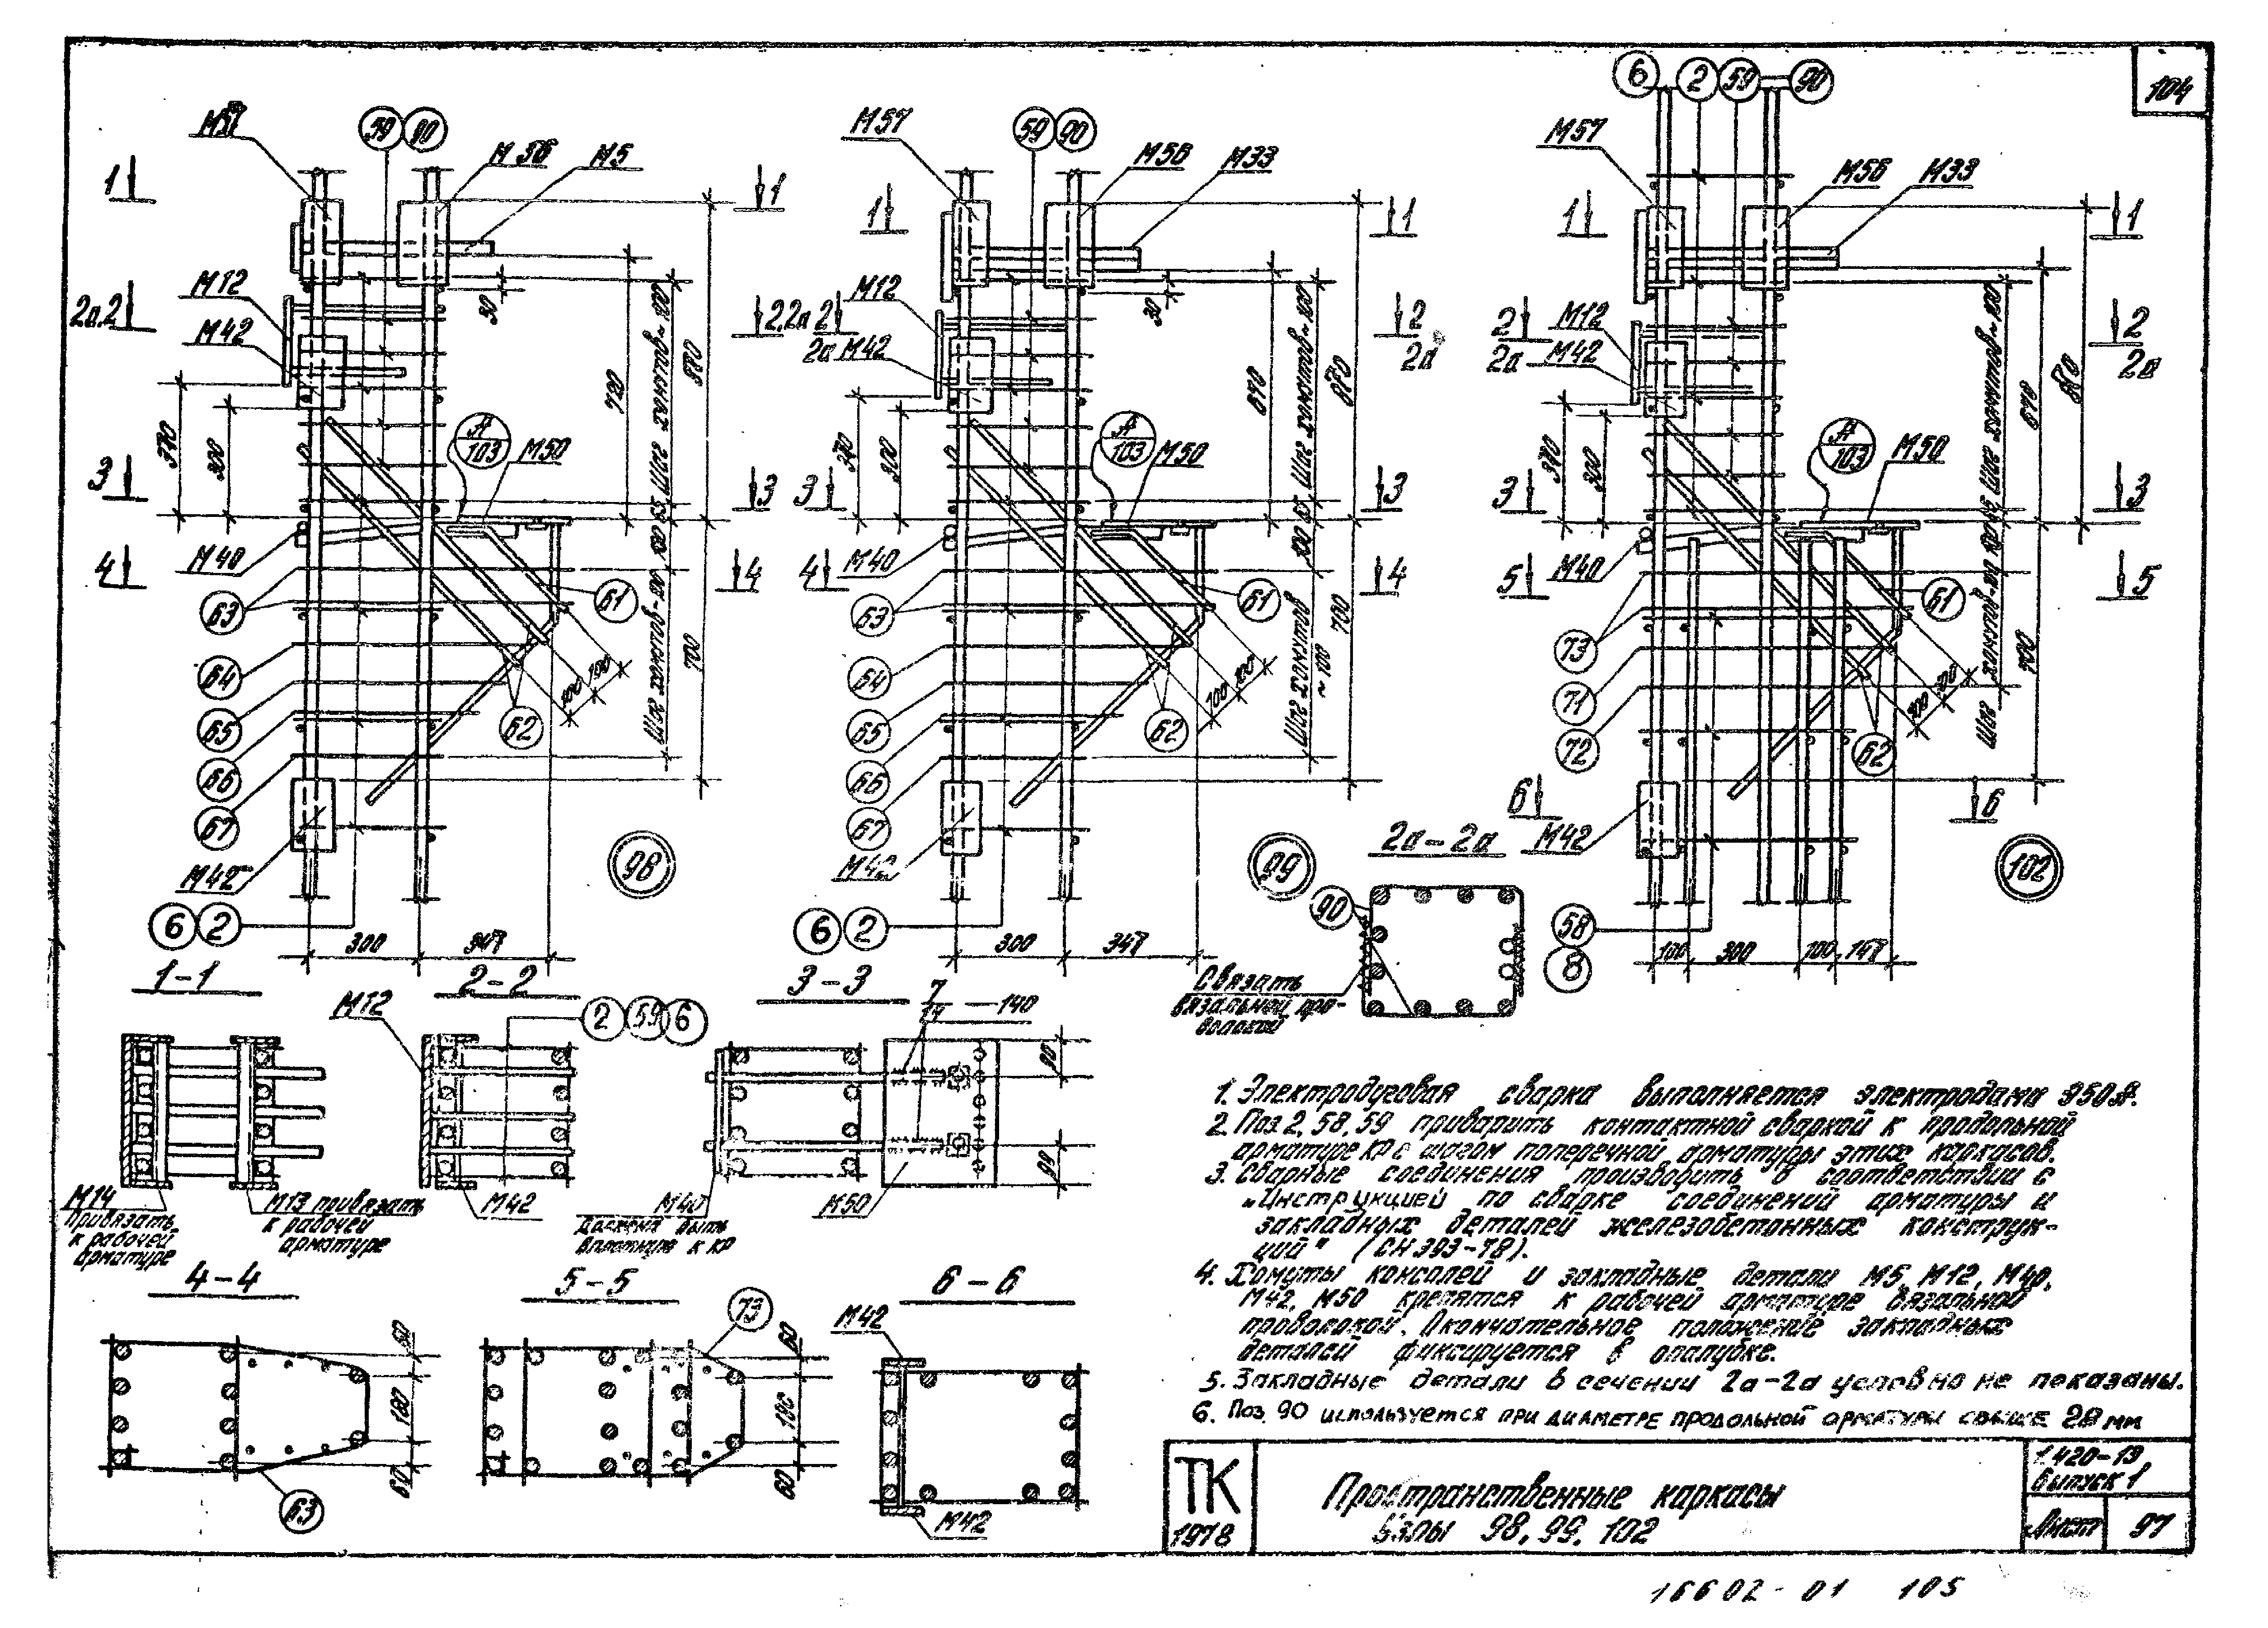 104
М57
59 90
М56 М5
1 1
М12
М42
2а,2 2,2а
370
300
3 3
А
103
М50
30
700
880
Шаг хомутов~100
100 85
М40
4 4
63
64
65
66
67
61
62
100 100
700
М42
6 2
300 347
98
М57
59 90
М56 М33
1 1
М12
2
2а М42
2
2а
30
670
850
370
300
Шаг хомутов~100
3 3
А
103
М50
100 85
М40
4 4
63
64
65
66
67
61
62
100 100
Шаг хомутов
~100
700
М42
6 2
300 347
99
6 2 59 90
М57
М56 М33
1 1
2 М12
2а М42
2
2а
370
300
670
850
3 3
А
103
М50
М40
5 5
73
71
72
61
62
100 100
700
6 6
М42
58
8
100 300 100 147
102
2а-2а
90
Связать
вязальной про-
волокой
1-1
М14
Привязать
к рабочей
арматуре
М13 привязать
к рабочей
арматуре
2-2
М12
2 59 6
М42
3-3
7
14
140
90
90
М40
должна быть
вплотную к КР
М50
4-4
60
180
60
63
5-5
73
60
180
60
6-6
М42
М42
1. Электродуговая сварка выполняется электродами Э50А.
2. Поз. 2, 58, 59 приварить контактной сваркой к продольной
арматуре КР с шагом поперечной арматуры этих каркасов.
3. Сварные соединения производить в соответствии с
„Инструкцией по сварке соединений арматуры и
закладных деталей железобетонных конструк-
ций" (СН 393-78).
4. Хомуты консолей и закладные детали М5, М12, М40,
М42, М50 крепятся к рабочей арматуре вязальной
проволокой. Окончательное положение закладных
деталей фиксируется в опалубке.
5. Закладные детали в сечении 2а-2а условно не показаны.
6. Поз. 90 используется при диаметре продольной арматуры свыше 28 мм
ТК
1978
Пространственные каркасы
Узлы 98, 99, 102
1.420-19
Выпуск 1
Лист 97
16602-01 105